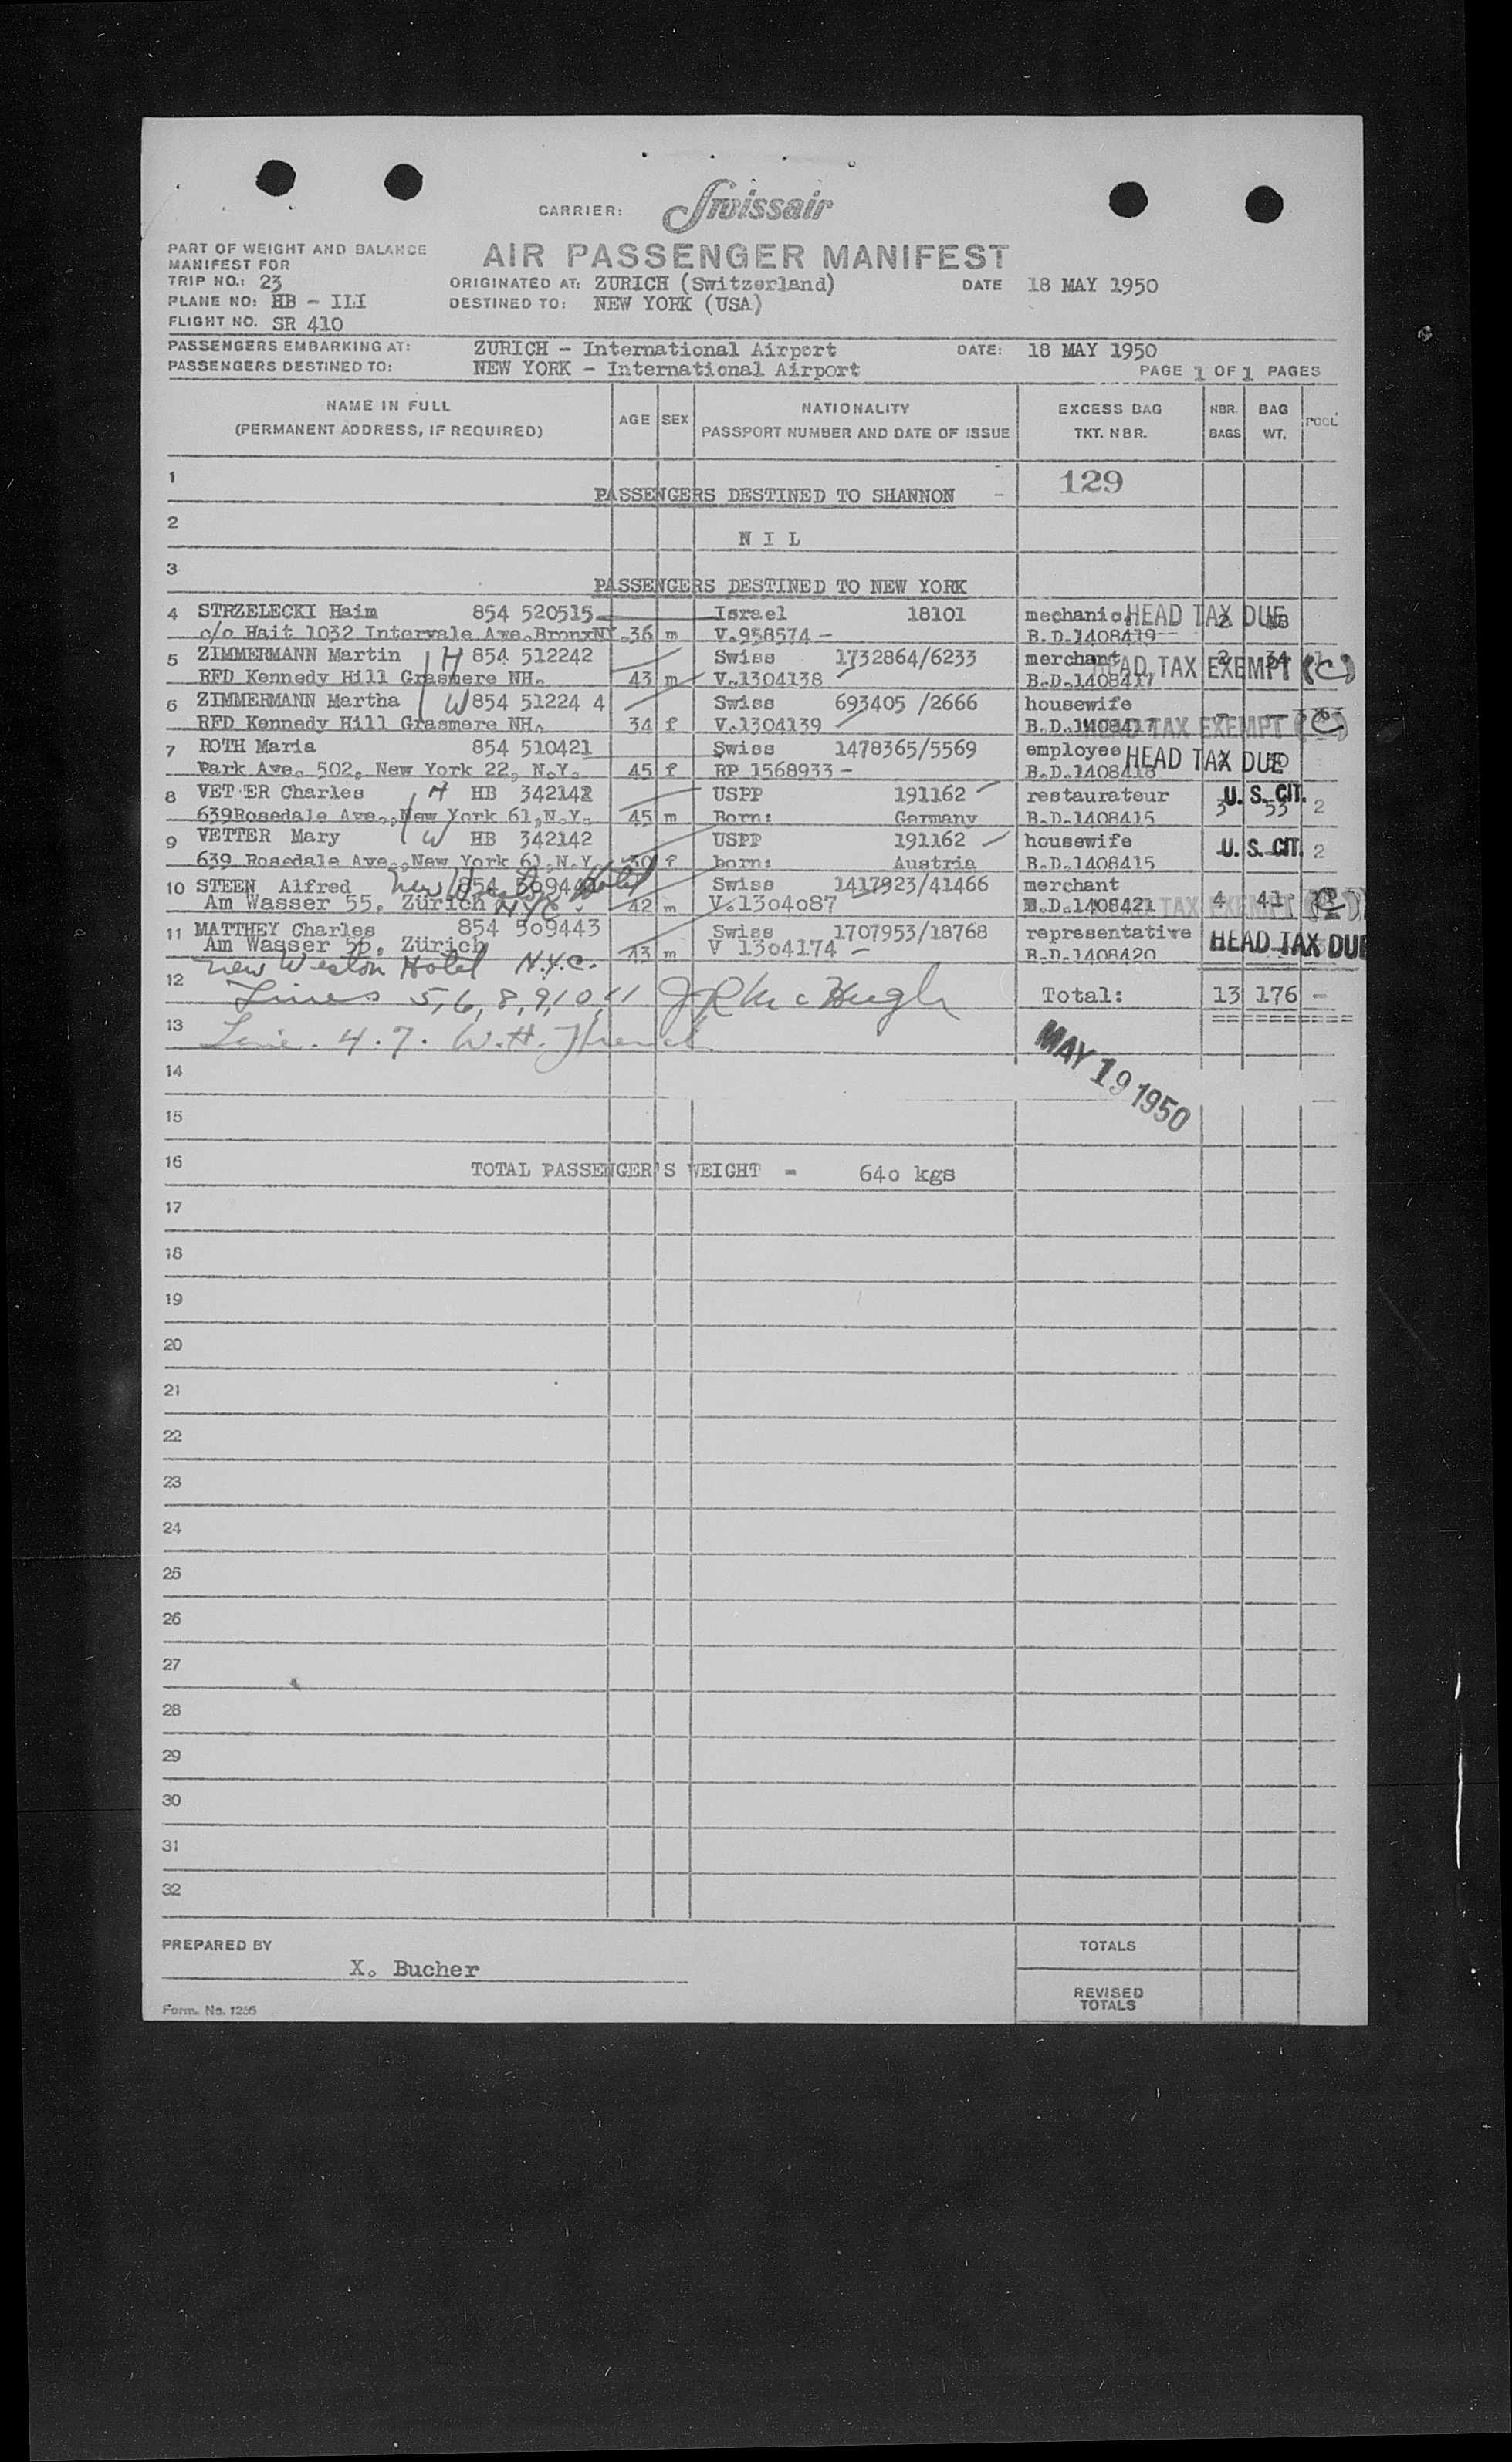 CARRIER: Swissair
PART OF WEIGHT AND BALANCE
MANIFEST FOR
AIR PASSENGER MANIFEST
TRIP NO.: 23 ORIGINATED AT: ZURICH (Switzerland) DATE 18 MAY 1950
PLANE NO: HB - ILI DESTINED TO: NEW YORK (USA)
FLIGHT NO. SR 410
PASSENGERS EMBARKING AT: ZURICH - International Airport DATE: 18 MAY 1950
PASSENGERS DESTINED TO: NEW YORK - International Airport PAGE 1 OF 1 PAGES
NAME IN FULL AGE SEX NATIONALITY EXCESS BAG NBR. BAG
(PERMANENT ADDRESS, IF REQUIRED) PASSPORT NUMBER AND DATE OF ISSUE TKT. NBR. BAGS WT.
1 129
PASSENGERS DESTINED TO SHANNON -
2
N I L
3
PASSENGERS DESTINED TO NEW YORK
4 STRZELECKI Haim 854 520515 Israel 18101 mechanic HEAD TAX DUE
c/o Hait 1032 Intervale Ave.BronxNY. 36 m V.958574 - B.D.1408419
5 ZIMMERMANN Martin H 854 512242 Swiss 1732864/6233 merchant HEAD TAX EXEMPT (C)
RFD Kennedy Hill Grasmere NH. 43 m V.1304138 B.D.1408417
6 ZIMMERMANN Martha W 854 51224 4 Swiss 693405 /2666 housewife
RFD Kennedy Hill Grasmere NH. 34 f V.1304139 B.D.1408417 HEAD TAX EXEMPT (C)
7 ROTH Maria 854 510421 Swiss 1478365/5569 employee HEAD TAX DUE
Park Ave. 502, New York 22, N.Y. 45 f RP 1568933 - B.D.1408418
8 VET ER Charles H HB 342142 USPP 191162 restaurateur U. S. CIT.
639Rosedale Ave.,New York 61,N.Y. 45 m Born: Germany B.D.1408415 3 53 2
9 VETTER Mary W HB 342142 USPP 191162 housewife U. S. CIT. 2
639 Rosedale Ave.,New York 61,N.Y. 30 f born: Austria B.D.1408415
10 STEEN Alfred New Weston Hotel Swiss 1417923/41466 merchant
Am Wasser 55. Zürich NYC. 42 m V.1304087 B.D.1408421 4 41 TAX EXEMPT (C)
11 MATTHEY Charles 854 509443 Swiss 1707953/18768 representative HEAD TAX DUE
Am Wasser 55. Zürich 43 m V 1304174 - B.D.1408420
New Weston Hotel N.Y.C.
12 Lines 5,6,8,9,10,11 J R McHugh Total: 13 176 -
13 Line. 4.7. W.H.
MAY 19 1950
14
15
16
TOTAL PASSENGER'S WEIGHT = 640 kgs
17
18
19
20
21
22
23
24
25
26
27
28
29
30
31
32
PREPARED BY TOTALS
X. Bucher
REVISED
TOTALS
Form. No. 1256